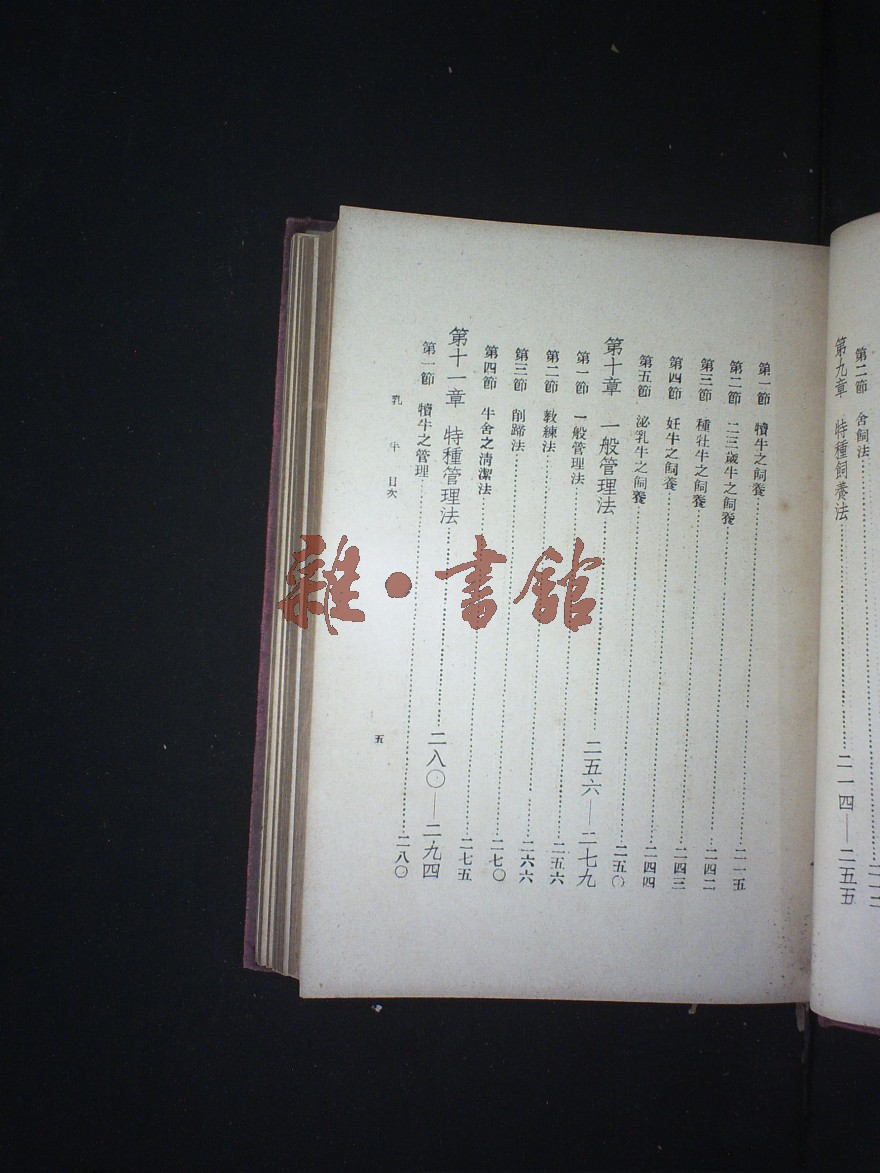 第二節 舍飼法
第九章 特種飼養法……二一四—二五五
第一節 犢牛之飼養……二一五
第二節 二三歲牛之飼養……二四二
第三節 種牡牛之飼養……二四三
第四節 妊牛之飼養……二四四
第五節 泌乳牛之飼養……二五〇
第十章 一般管理法……二五六—二七九
第一節 一般管理法……二五六
第二節 教練法……二六六
第三節 削蹄法……二七〇
第四節 牛舍之清潔法……二七五
第十一章 特種管理法……二八〇—二九四
第一節 犢牛之管理……二八〇
乳牛 目次
五
雜·書館